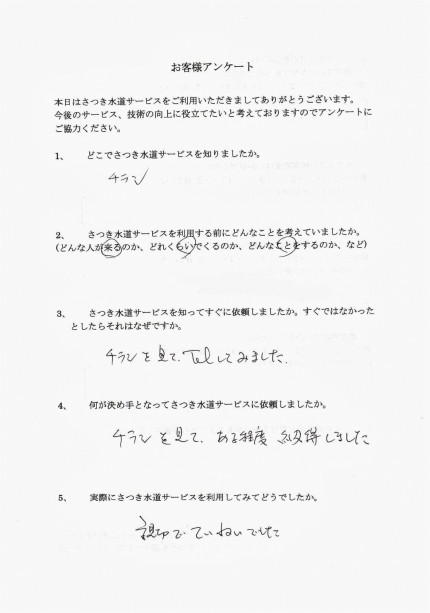 お客様アンケート
本日はさつき水道サービスをご利用いただきましてありがとうございます。
今後のサービス、技術の向上に役立てたいと考えておりますのでアンケートに
ご協力ください。
1、 どこでさつき水道サービスを知りましたか。
チラシ
2、 さつき水道サービスを利用する前にどんなことを考えていましたか。
(どんな人が来るのか、どれくらいでくるのか、どんなことをするのか、など)
3、 さつき水道サービスを知ってすぐに依頼しましたか。すぐではなかった
としたらそれはなぜですか。
チラシを見て、Telしてみました。
4、 何が決め手となってさつき水道サービスに依頼しましたか。
チラシを見て、ある程度 納得しました
5、 実際にさつき水道サービスを利用してみてどうでしたか。
親切でていねいでした